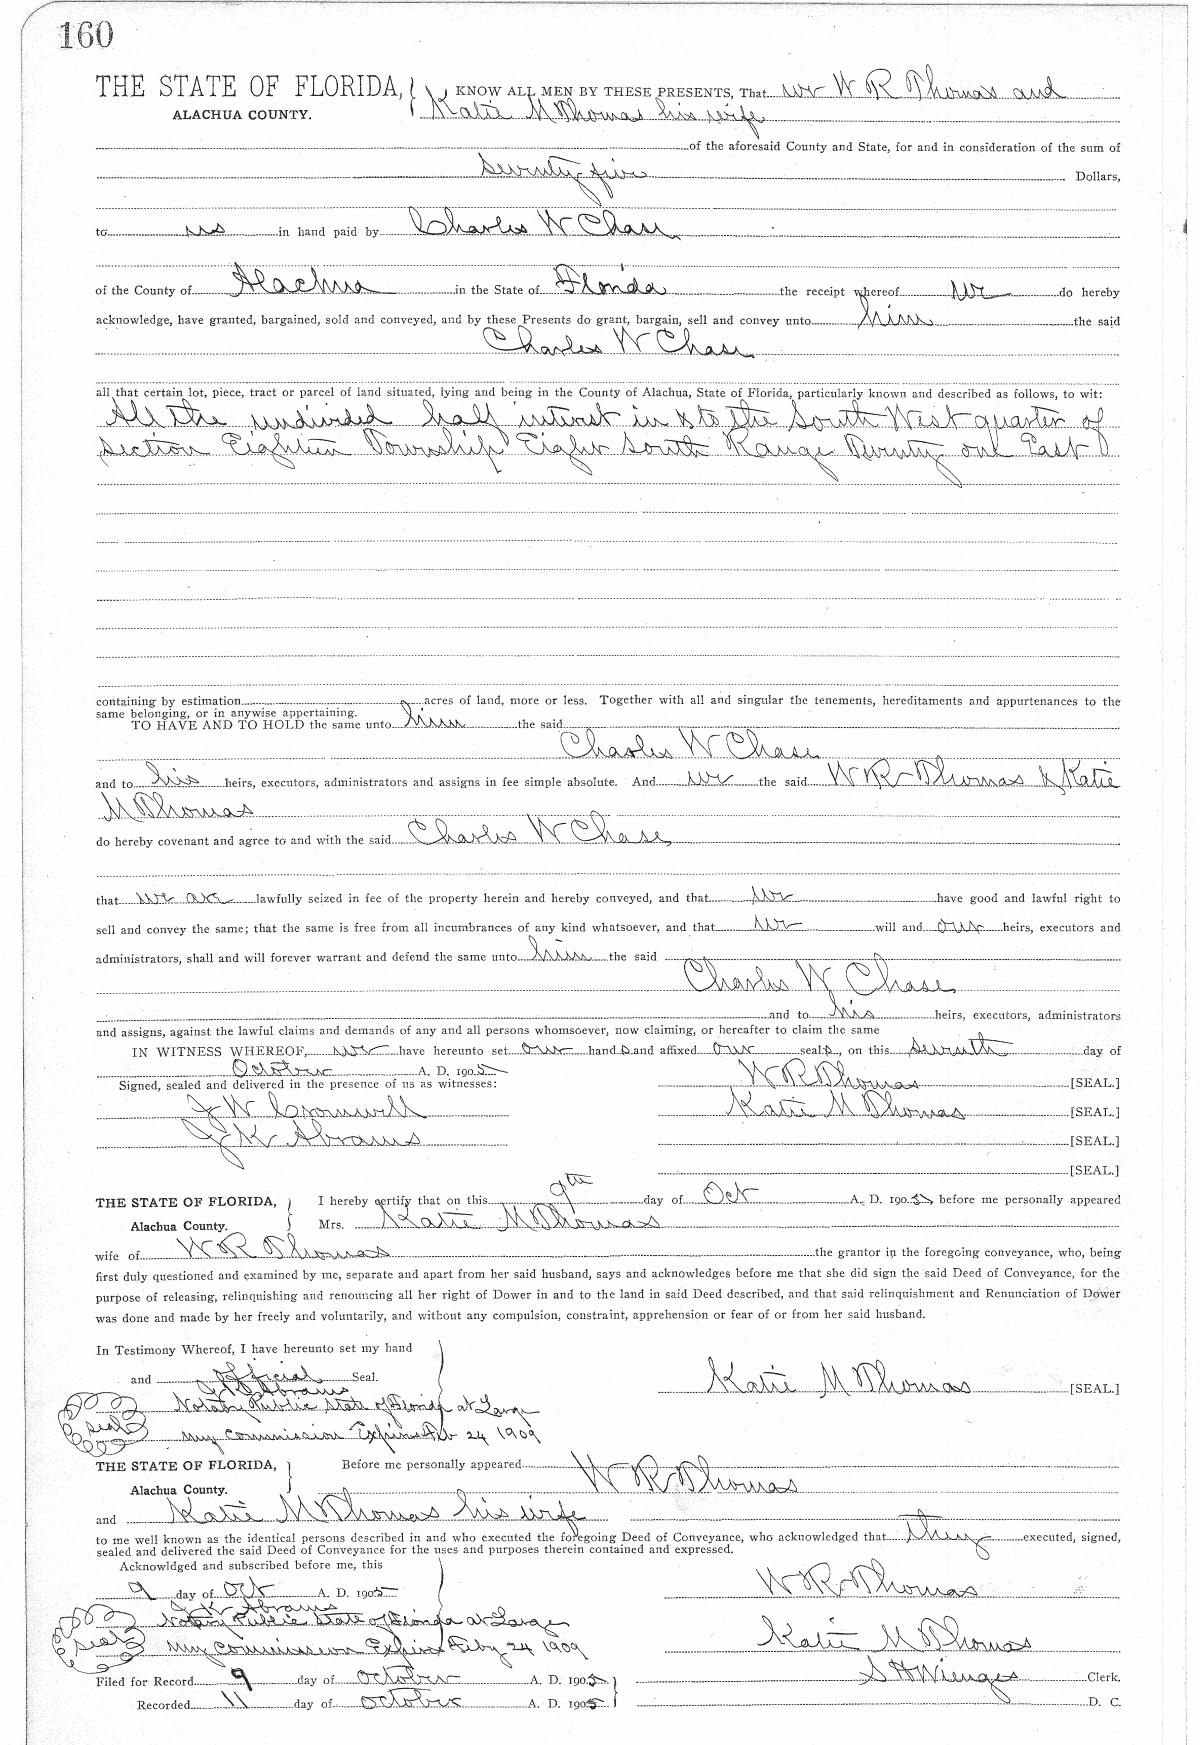 160
THE STATE OF FLORIDA, KNOW ALL MEN BY THESE PRESENTS, That we W R Thomas and
ALACHUA COUNTY. Katie M Thomas his wife
of the aforesaid County and State, for and in consideration of the sum of
Seventy five Dollars,
to us in hand paid by Charles W Chase
of the County of Alachua in the State of Florida the receipt whereof we do hereby
acknowledge, have granted, bargained, sold and conveyed, and by these Presents do grant, bargain, sell and convey unto him the said
Charles W Chase
all that certain lot, piece, tract or parcel of land situated, lying and being in the County of Alachua, State of Florida, particularly known and described as follows, to wit:
All the undivided half interest in & to the South West quarter of
section Eighteen Township Eight South Range Twenty one East
containing by estimation acres of land, more or less. Together with all and singular the tenements, hereditaments and appurtenances to the
same belonging, or in anywise appertaining.
TO HAVE AND TO HOLD the same unto him the said
Charles W Chase
and to his heirs, executors, administrators and assigns in fee simple absolute. And we the said W R Thomas & Katie
M Thomas
do hereby covenant and agree to and with the said Charles W Chase
that we are lawfully seized in fee of the property herein and hereby conveyed, and that we have good and lawful right to
sell and convey the same; that the same is free from all incumbrances of any kind whatsoever, and that we will and our heirs, executors and
administrators, shall and will forever warrant and defend the same unto him the said
Charles W Chase
and to his heirs, executors, administrators
and assigns, against the lawful claims and demands of any and all persons whomsoever, now claiming, or hereafter to claim the same
IN WITNESS WHEREOF, we have hereunto set our hands and affixed our seals, on this seventh day of
October A. D. 1905 W R Thomas [SEAL.]
Signed, sealed and delivered in the presence of us as witnesses:
J W Cromwell Katie M Thomas [SEAL.]
J K Abrams [SEAL.]
[SEAL.]
THE STATE OF FLORIDA, I hereby certify that on this 9th day of Oct A. D. 1905, before me personally appeared
Alachua County. Mrs. Katie M Thomas
wife of W R Thomas the grantor in the foregoing conveyance, who, being
first duly questioned and examined by me, separate and apart from her said husband, says and acknowledges before me that she did sign the said Deed of Conveyance, for the
purpose of releasing, relinquishing and renouncing all her right of Dower in and to the land in said Deed described, and that said relinquishment and Renunciation of Dower
was done and made by her freely and voluntarily, and without any compulsion, constraint, apprehension or fear of or from her said husband.
In Testimony Whereof, I have hereunto set my hand
and official Seal. Katie M Thomas [SEAL.]
J K Abrams
Notary Public State of Florida at Large
seal My commission Expires Feb 24 1909
THE STATE OF FLORIDA, Before me personally appeared W R Thomas
Alachua County.
and Katie M Thomas his wife
to me well known as the identical persons described in and who executed the foregoing Deed of Conveyance, who acknowledged that they executed, signed,
sealed and delivered the said Deed of Conveyance for the uses and purposes therein contained and expressed.
Acknowldged and subscribed before me, this
9 day of Oct A. D. 1905 W R Thomas
J K Abrams
Notary Public State of Florida at Large
seal My commission Expires Feby 24 1909 Katie M Thomas
Filed for Record 9 day of October A. D. 1905 S H Wienges Clerk.
Recorded 11 day of October A. D. 1905 D. C.